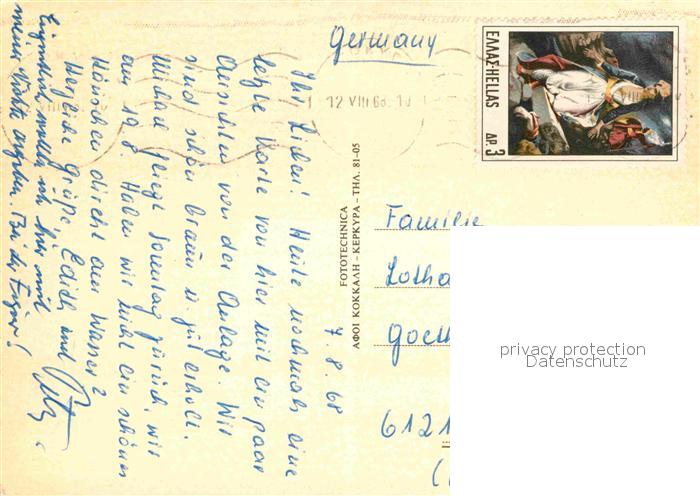 Germany
ΕΛΛΑΣ-HELLAS
ΔΡ. 3
12 VIII 68. 10
7. 8. 68
Ihr Lieben! Heute nochmals eine
letzte Karte von hier mit ein paar
Ansichten von der Anlage. Wir
sind schon braun u. gut erholt.
Michael fliegt Sonntag zurück, wir
am 19.8. Haben wir nicht ein schönes
Häuschen direkt am Wasser?
Herzliche Grüße, Edith und
Eigentlich wollte ich hier mit
meiner Nichte angeben. Bei der Figur!
FOTOTECHNICA
ΑΦΟΙ ΚΟΚΚΑΛΗ - ΚΕΡΚΥΡΑ - ΤΗΛ. 81-05
Familie
Lotha
Goeth
6121
privacy protection
Datenschutz